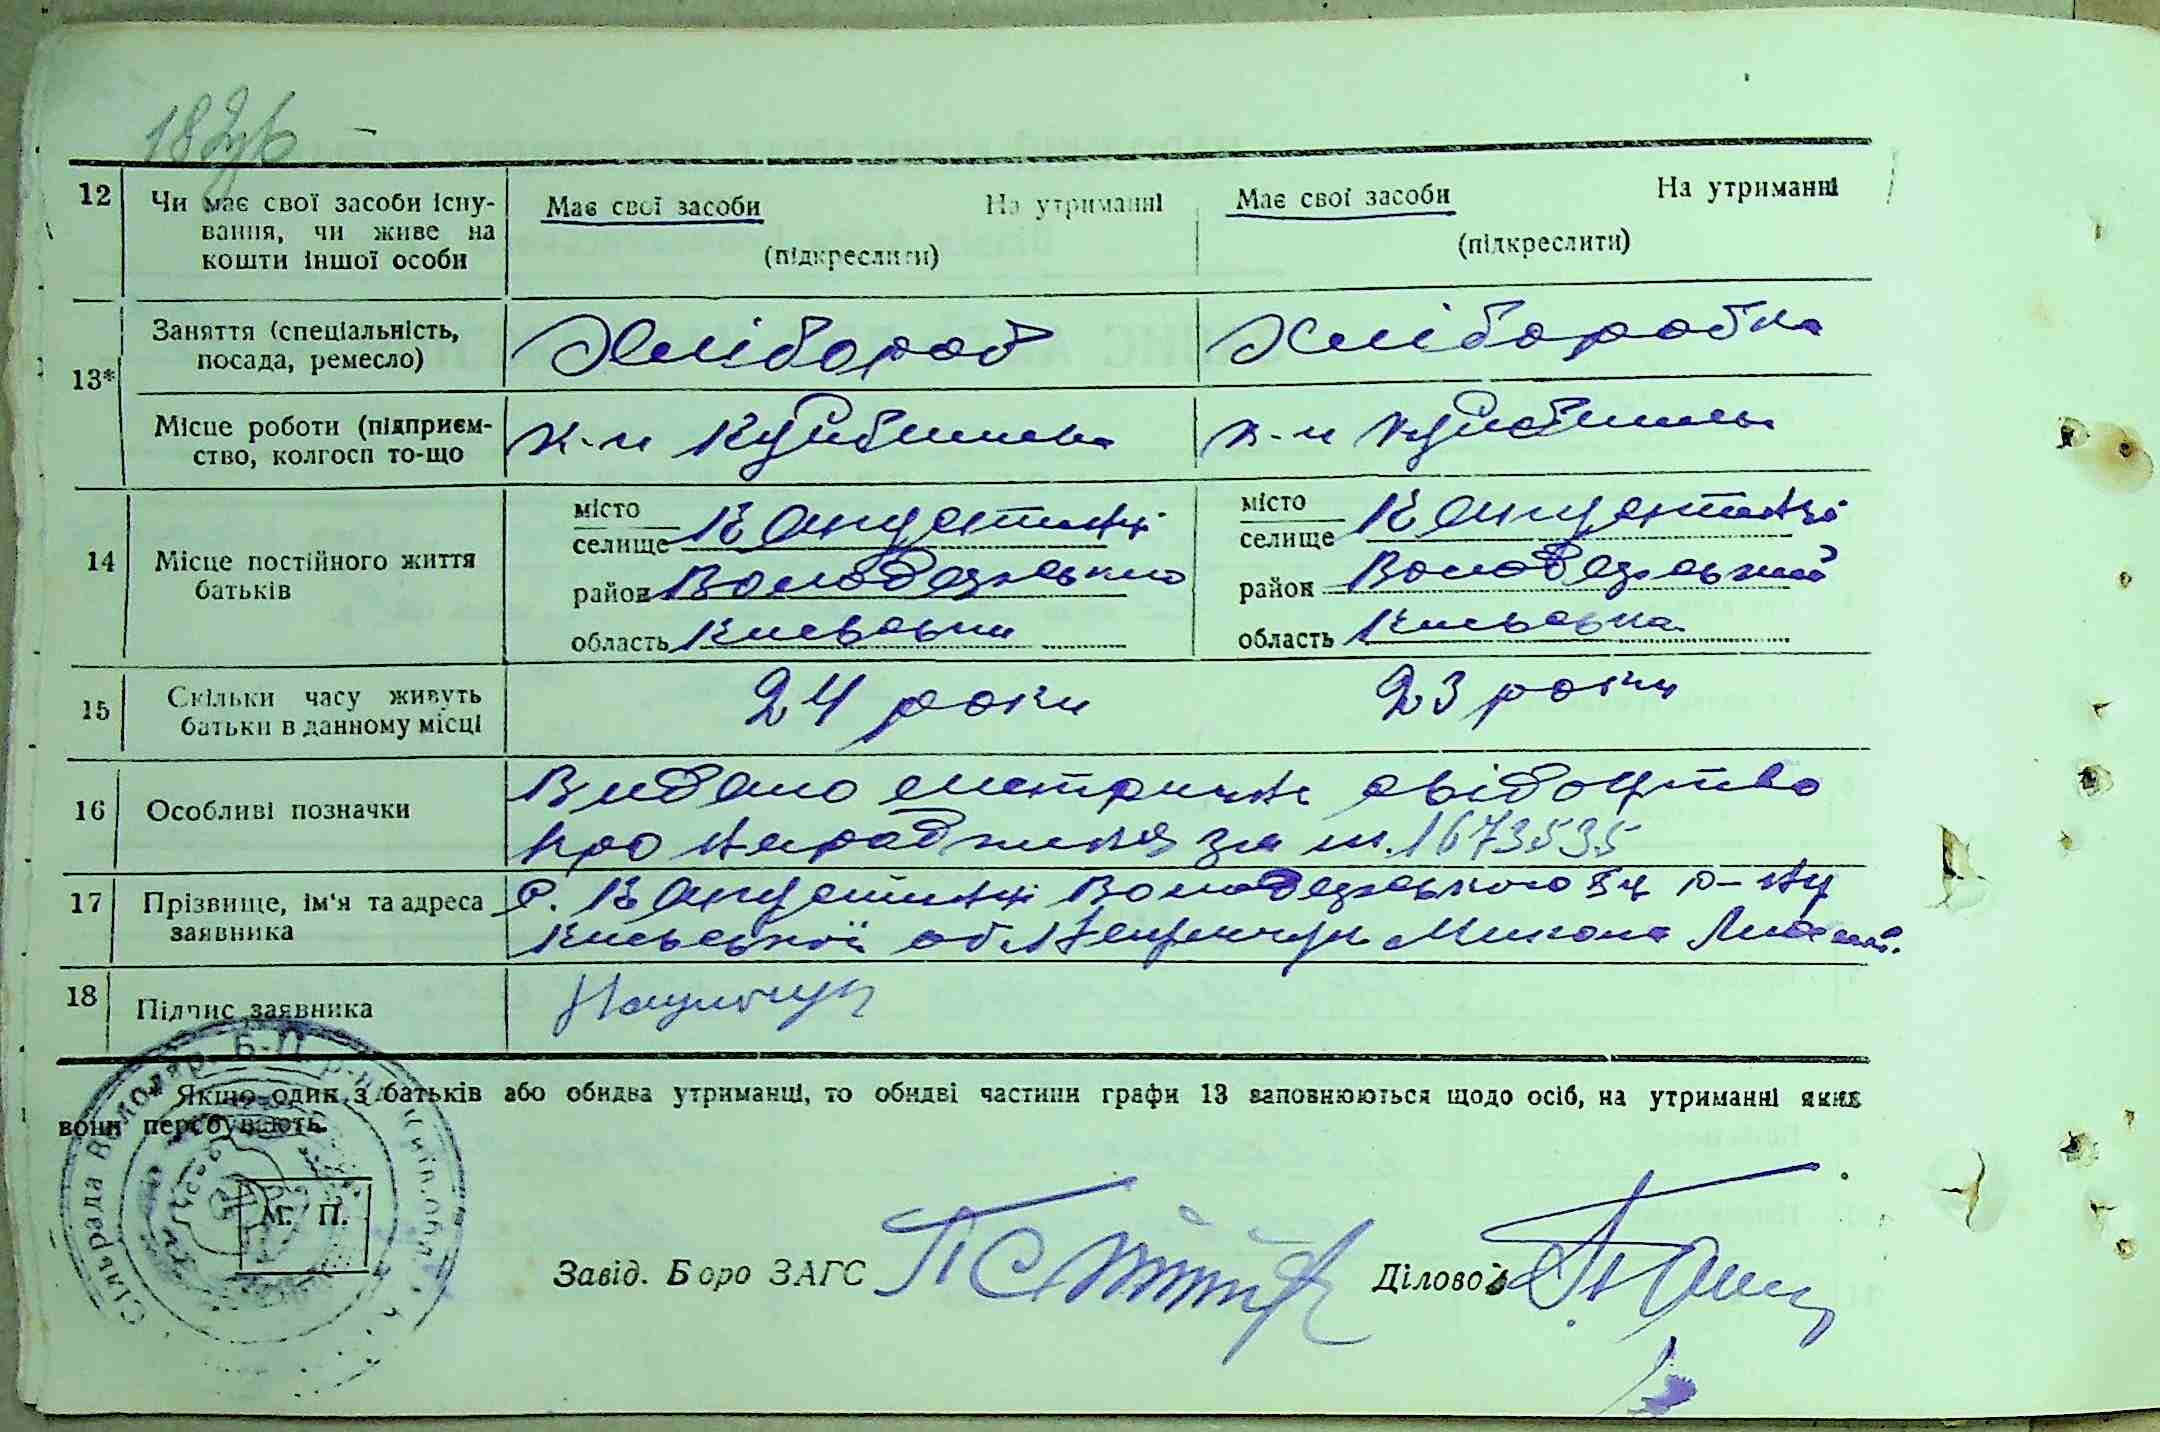 18 зв
12 Чи має свої засоби існу- Має свої засоби На утриманні Має свої засоби На утриманні
вання, чи живе на (підкреслити) (підкреслити)
кошти іншої особи
13* Заняття (спеціальність, Хлібороб Хліборобка
посада, ремесло)
Місце роботи (підприєм- к-п Куйбишева к-п Куйбишева
ство, колгосп то-що
14 Місце постійного життя місто місто
батьків селище селище
район Володарського район Володарський
область Київська область Київська
15 Скільки часу живуть 24 роки 23 роки
батьки в данному місці
16 Особливі позначки Видано метричне свідоцтво
про народження за № 1673535
17 Прізвище, ім'я та адреса с. Володарського р-ну
заявника Київської об. Микола
18 Підпис заявника
Якщо один з батьків або обидва утриманці, то обидві частини графи 13 заповнюються щодо осіб, на утриманні яких
вони перебувають.
Сільрада Володар. Б-Ц р-н Київ. обл.
М. П.
Завід. Боро ЗАГС Діловод